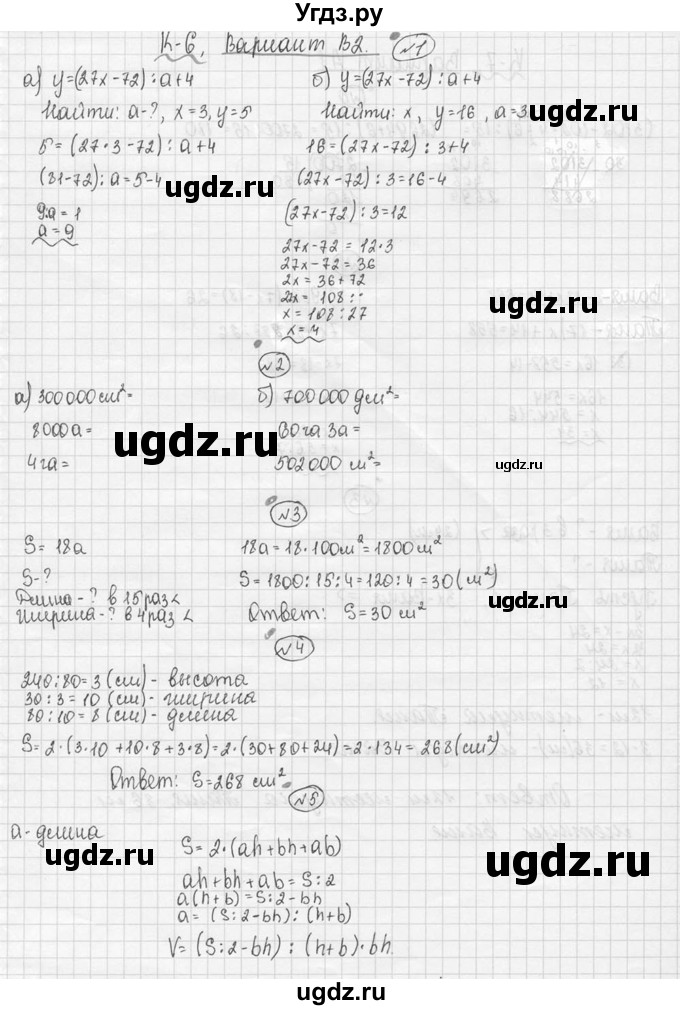 Угдз.ру
К-6, Вариант В2. №1
а) y=(27x-72):a+4
Найти: a-?, x=3, y=5
5=(27·3-72):a+4
(81-72):a=5-4
9:a=1
a=9
б) y=(27x-72):a+4
Найти: x, y=16, a=3
16=(27x-72):3+4
(27x-72):3=16-4
(27x-72):3=12
27x-72=12·3
27x-72=36
2x=36+72
27x=108
x=108:27
x=4
№2
а) 300000см²=
8000а=
4га=
б) 700000дм²=
80га 3а=
502000 м²=
№3
S=18а
S-?
Длина-? в 15раз<
Ширина-? в 4раз<
18а=18·100м²=1800м²
S=1800:15:4=120:4=30(м²)
Ответ: S=30м²
№4
240:80=3(см)-высота
30:3=10(см)-ширина
80:10=8(см)-длина
S=2·(3·10+10·8+3·8)=2·(30+80+24)=2·134=268(см²)
Ответ: S=268 см²
№5
a-длина
S=2·(ah+bh+ab)
ah+bh+ab=S:2
a(h+b)=S:2-bh
a=(S:2-bh):(h+b)
V=(S:2-bh):(h+b)·bh.
ugdz.ru
ugdz.ru
ugdz.ru
ugdz.ru
ugdz.ru
ugdz.ru
ugdz.ru
ugdz.ru
ugdz.ru
ugdz.ru
ugdz.ru